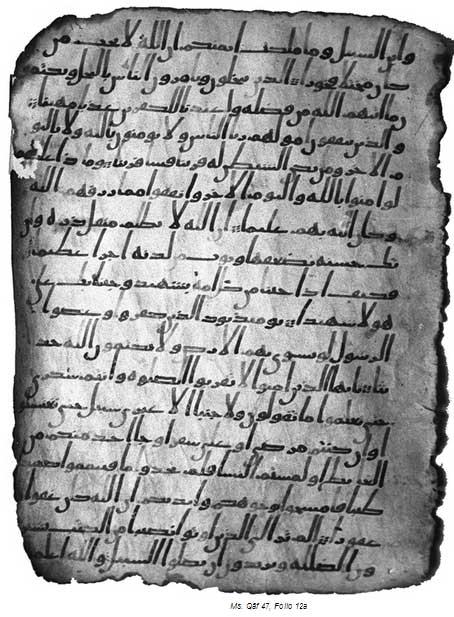 وابن السبيل وما ملكت ايمنكم ان الله لا يحب من
كان مختلا فخورا الذين يبخلون ويامرون الناس بالبخل ويكتمو
ن ما اتهم الله من فضله واعتدنا للكفرين عذابا مهينا
والذين ينفقون امولهم ريا الناس ولا يومنون بالله ولا باليو
م الاخر ومن يكن الشيطن له قرينا فسا قرينا وماذا عليهم
لو امنوا بالله واليوم الاخر وانفقوا مما رزقهم الله
وكان الله بهم عليما ان الله لا يظلم مثقل ذره وان
تك حسنه يضعفها ويوت من لدنه اجرا عظيما
فكيف اذا جينا من كل امه بشهيد وجينا بك على
هولا شهيدا يوميذ يود الذين كفروا وعصوا
الرسول لو تسوى بهم الارض ولا يكتمون الله حد
يثا يايها الذين امنوا لا تقربوا الصلوه وانتم سكرى
حتى تعلموا ما تقولون ولا جنبا الا عبري سبيل حتى تغتسلوا
وان كنتم مرضى او على سفر او جا احد منكم من
الغايط او لمستم النسا فلم تجدوا ما فتيمموا صعيدا
طيبا فامسحوا بوجوهكم وايديكم ان الله كان عفوا
غفورا الم تر الى الذين اوتوا نصيبا من الكتب يشتر
ون الضلله ويريدون ان تضلوا السبيل والله اعلم
Ms. Qāf 47, Folio 12a